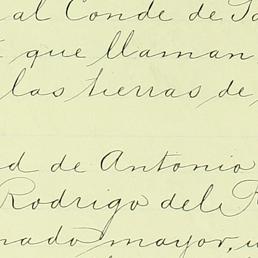 al Conde de
que llaman
las tierras de
d de Antonio
Rodrigo del
nado mayor,